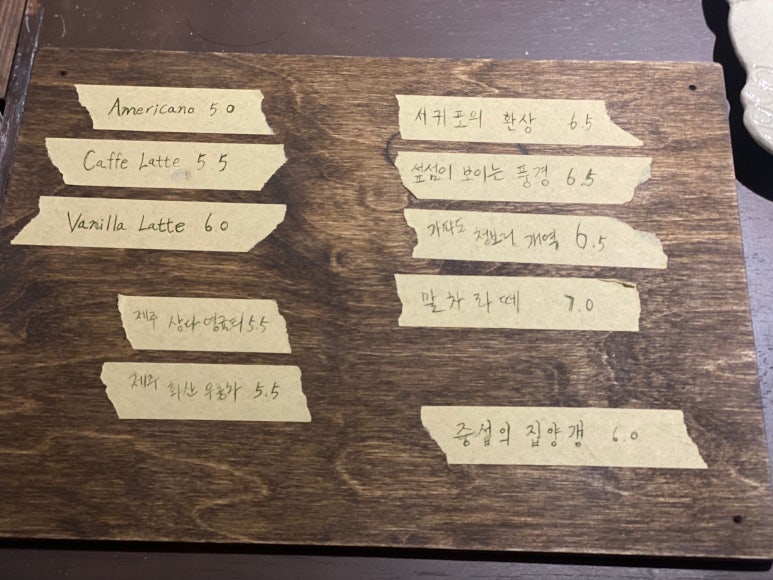 Americano 5.0
Caffe Latte 5.5
Vanilla Latte 6.0
제주 삼다영귤티 5.5
제주 화산우롱차 5.5
서귀포의 환상 6.5
섶섬이 보이는 풍경 6.5
가파도 청보리 개역 6.5
말차라떼 7.0
중섭의 집양갱 6.0